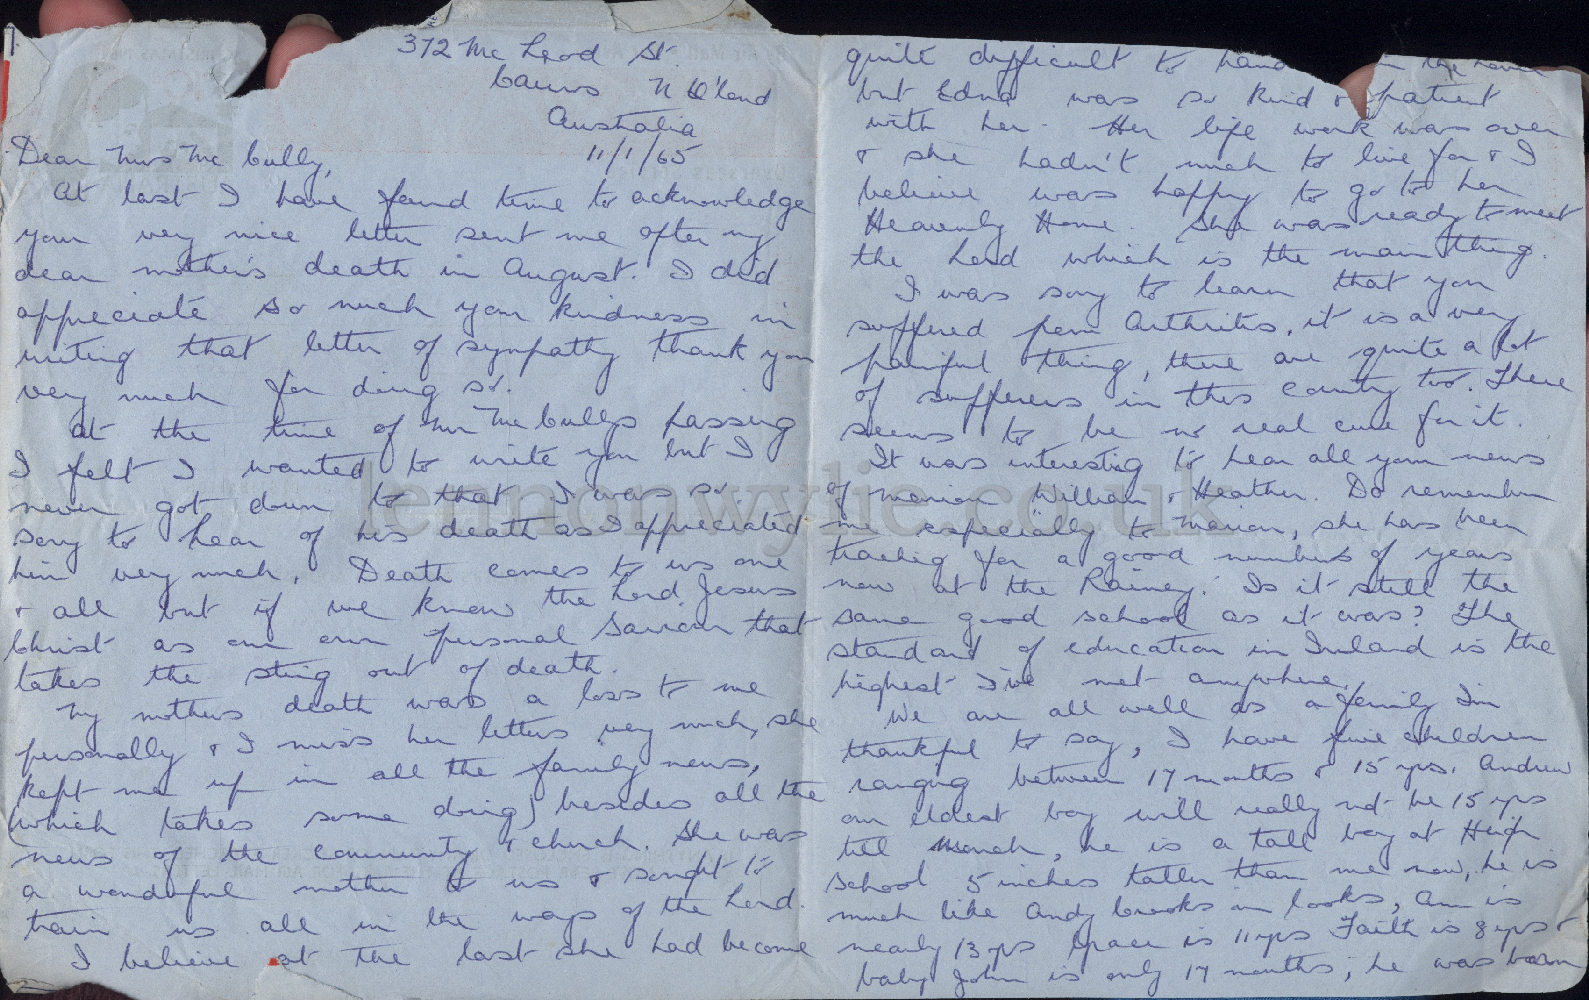 372 Mc Leod St.
Cairns N Q'land
Australia
11/1/65
Dear Mrs Mc Cully,
At last I have found time to acknowledge
your very nice letter sent me after my
dear mother's death in August. I did
appreciate so much your kindness in
writing that letter of sympathy thank you
very much for doing so.
At the time of Mr McCullys passing
I felt I wanted to write you but I
never got down to that I was so
sorry to hear of his death as I appreciated
him very much. Death comes to us one
& all but if we know the Lord Jesus
Christ as our own personal Saviour that
takes the sting out of death.
My mothers death was a loss to me
personally & I miss her letters very much, she
kept me up in all the family news,
(which takes some doing) besides all the
news of the community & church. She was
a wonderful mother to us & sought to
train us all in the ways of the Lord.
I believe at the last she had become
quite difficult to in the
but Edna was so kind & patient
with her. Her life work was over
& she hadn't much to live for & I
believe was happy to go to her
Heavenly Home. She was ready to meet
the Lord which is the main thing.
I was sorry to learn that you
suffered from Arthritis, it is a very
painful thing, there are quite a lot
of sufferers in this country too. There
seems to be no real cure for it.
It was interesting to hear all your news
of Marion William & Heather. Do remember
me especially to Marion, she has been
teaching for a good number of years
now at the Rainey. Is it still the
same good school as it was? The
standard of education in Ireland is the
highest I've met anywhere.
We are all well as a family I'm
thankful to say, I have five children
ranging between 17 months & 15 yrs. Andrew
our eldest boy will really not be 15 yrs
till March, he is a tall boy at High
School 5 inches taller than me now, he is
much like Andy Crooks in looks, Ann is
nearly 13 yrs Grace is 11 yrs Faith is 8 yrs &
baby John is only 17 months, he was born
lennonwylie.co.uk